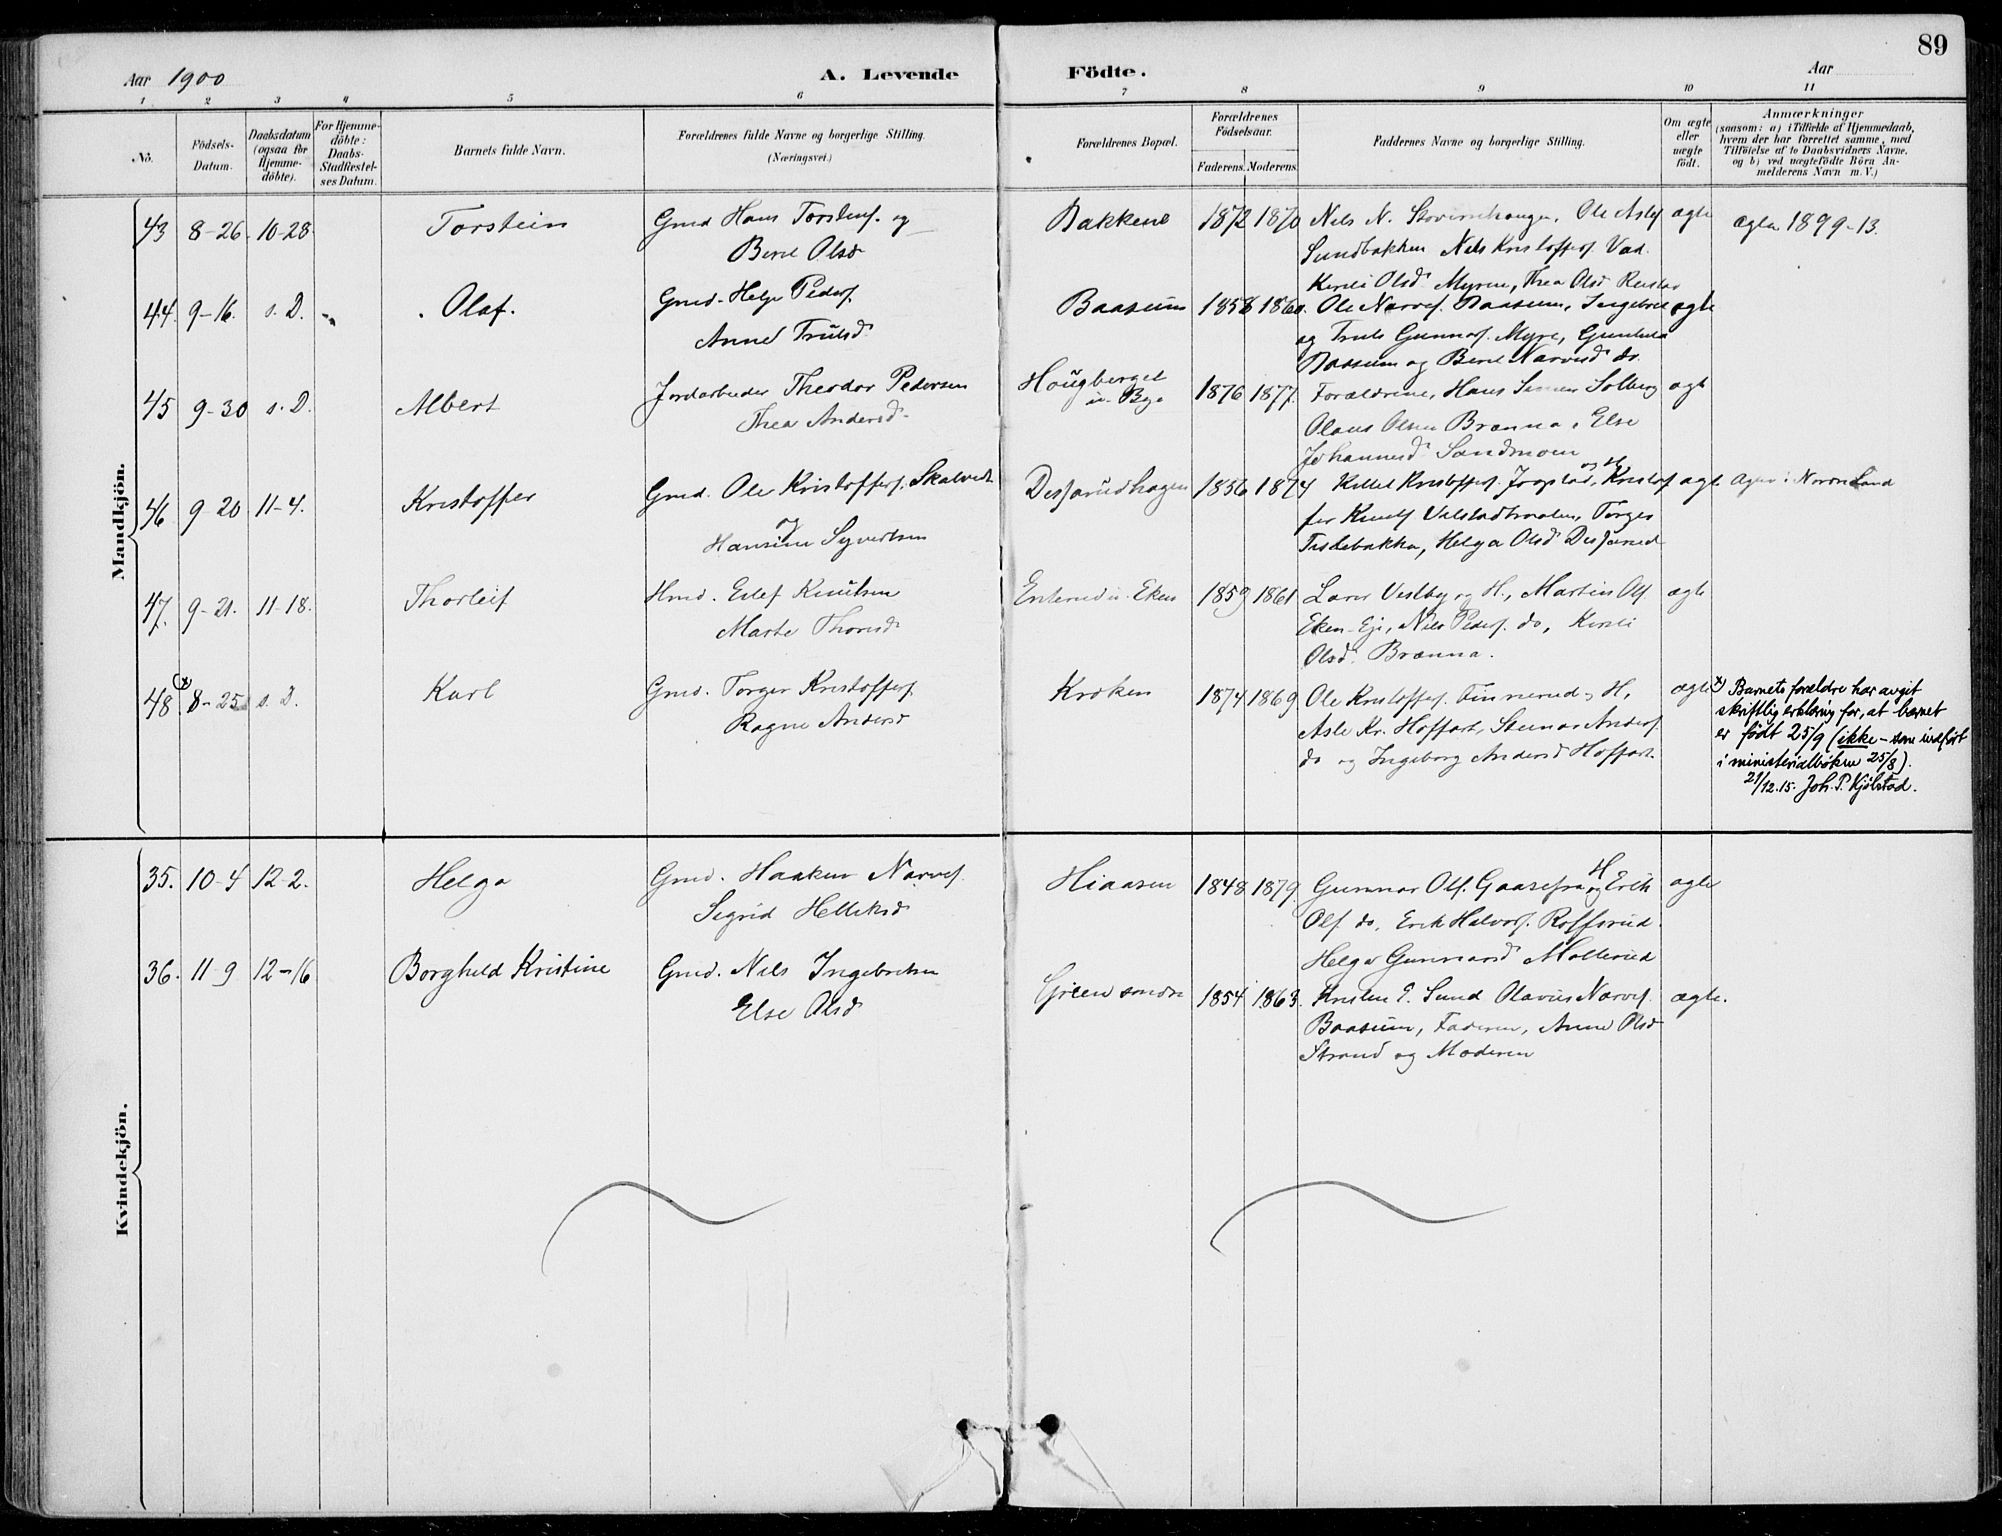 89
Aar 1900 A. Levende Födte. Aar
1 2 3 4 5 6 7 8 9 10 11
No.
Födsels-
Datum.
Daabsdatum
(ogsaa for
Hjemme-
döbte).
For Hjemme-
döbte:
Daabs-
Stadfæstel-
ses Datum.
Barnets fulde Navn.
Forældrenes fulde Navne og borgerlige Stilling.
(Næringsvei.)
Forældrenes Bopæl.
Forældrenes
Födselsaar.
Faderens. Moderens.
Faddernes Navne og borgerlige Stilling.
Om ægte
eller
uægte
födt.
Anmærkninger
(saasom: a) i Tilfælde af Hjemmedaab,
hvem der har forrettet samme, med
Tilföielse af to Daabsvidners Navne.
og b) ved uægtefödte Börn An-
melderens Navn m. V.)
Mandkjön.
43 8-26. 10-28 Torstein Gmd Hans Torstens. og Bakkene 1872 1870 Nels N. Ole Aslef ægte 1899-13.
Berit Olsd Sundbakken Nils Kristoffers. Vad.
Kirsti Olsd Myren, Thea Olsd
44. 9-16. s. D. Olaf. Gmd. Helge Peders. Baasum 1858 1860. Ole Narves. Baasum, Ingebret ægte
Anne Trulsd og Truls Gunnars. Myre, Gunhild
Baasum og Berit Narvesd do.
45 9-30 s. D. Albert Jordarbeider Theodor Pedersen Hougberget 1876 1877. Forældrene, Hans Simen Solberg ægte
Thea Andersd. u. Bye Olaus Olsen Brænna, Else
Johannesd Sandmoen
46 9-20 11-4. Kristoffer Gmd. Ole Kristoffers. Skalvedt Desjarudhagen 1856 1874 Kittel Kristoffers. Jogstad, og H, Kristof ægte
og fer Knuts Valstadbraaten, Torger
Hansine Syvertsen Tistebakka, Helga Olsd Desjarud
47. 9-21. 11-18. Thorleif Hmd. Eilef Knutsen Enterud u. Eken 1859 1861 Lars Vestby og H., Martin Ols. ægte
Marte Thorsd Eken-Eje, Nils Peders. do, Kirsti
Olsd. Brænna.
48 x) 8-25 s. D. Karl Gmd. Torger Kristoffers. Kroken 1874 1869 Ole Kristoffers. Finnerud og H, ægte
Ragne Andersd Asle Kr. Hoffart, Steinar Anders.
do og Ingeborg Andersd Hoffart.
x) Barnets forældre har avgit
skriftlig erklæring for, at barnet
er født 25/9 (ikke – som indført
i ministerialboken 25/8).
21/12.15. Joh. P. Kjølstad.
Kvindekjön.
35. 10-4 12-2. Helga Gmd. Haaken Narves. Hiaasen 1848 1879. Gunnar Ols. Gaasefra og H Erik ægte
Sigrid Helliksd Ols. do, Erik Halvors. Rossrud.
Helga Gunnarsd Mollerud
36. 11-9 12-16 Borghild Kristine Gmd. Nils Ingebretsen Green søndre 1854 1863. Kristen E. Sund Olavus Narves. ægte.
Else Olsd Baasum, Faderen, Anne Olsd
Strand og Moderen